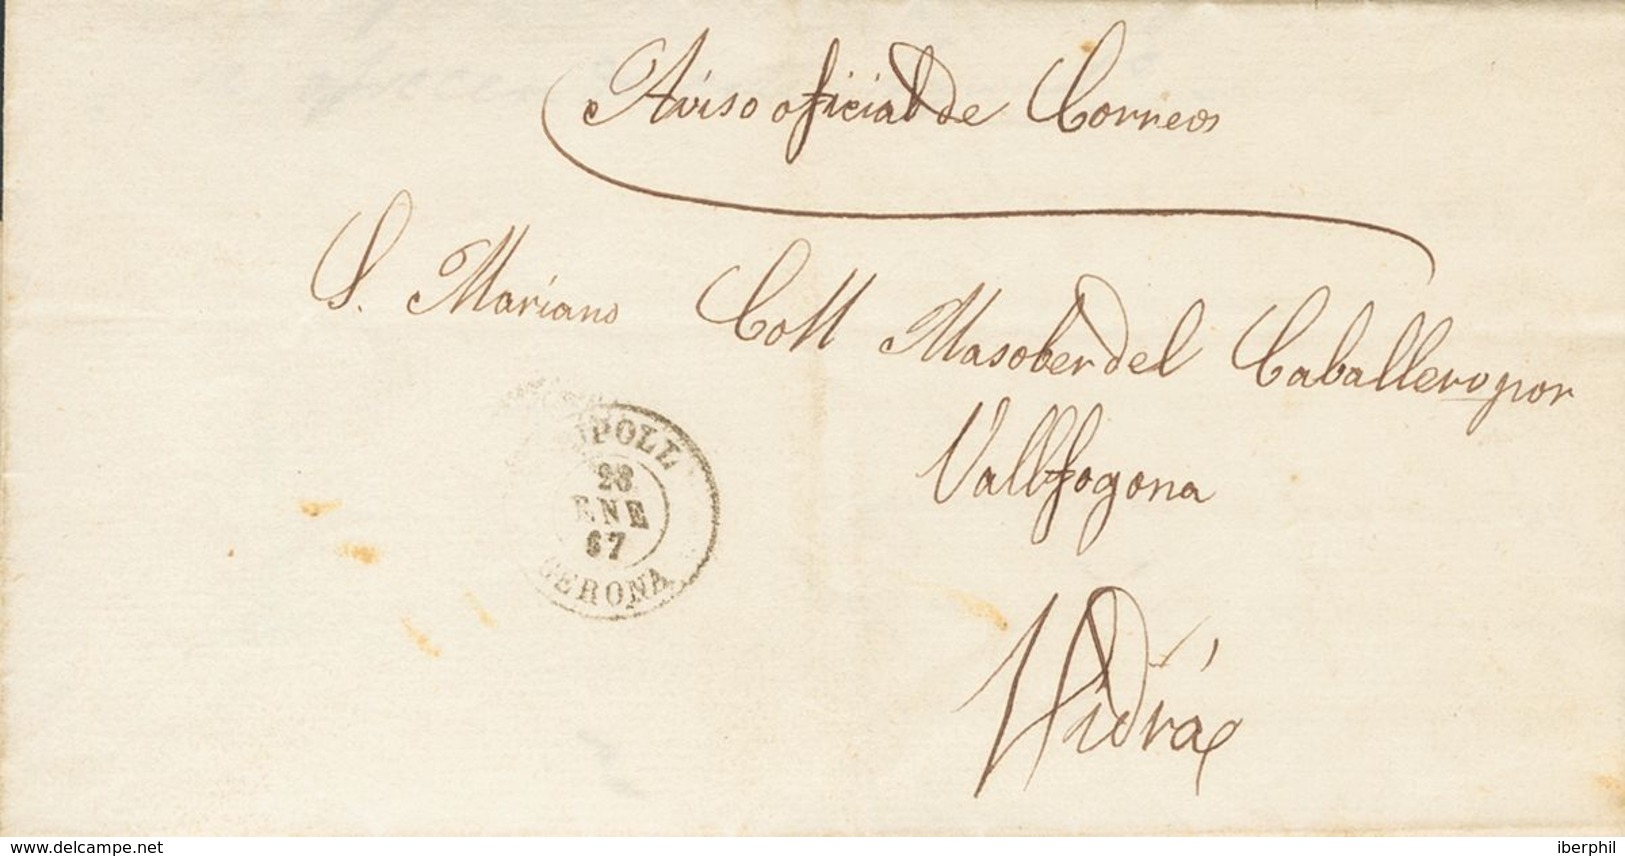 Aviso oficial de Correos
S. Mariano Coll Masober del Caballero por
Vallfogona
RIPOLL
28
ENE
67
GERONA
Vidrá
delcampe.net
iberphil